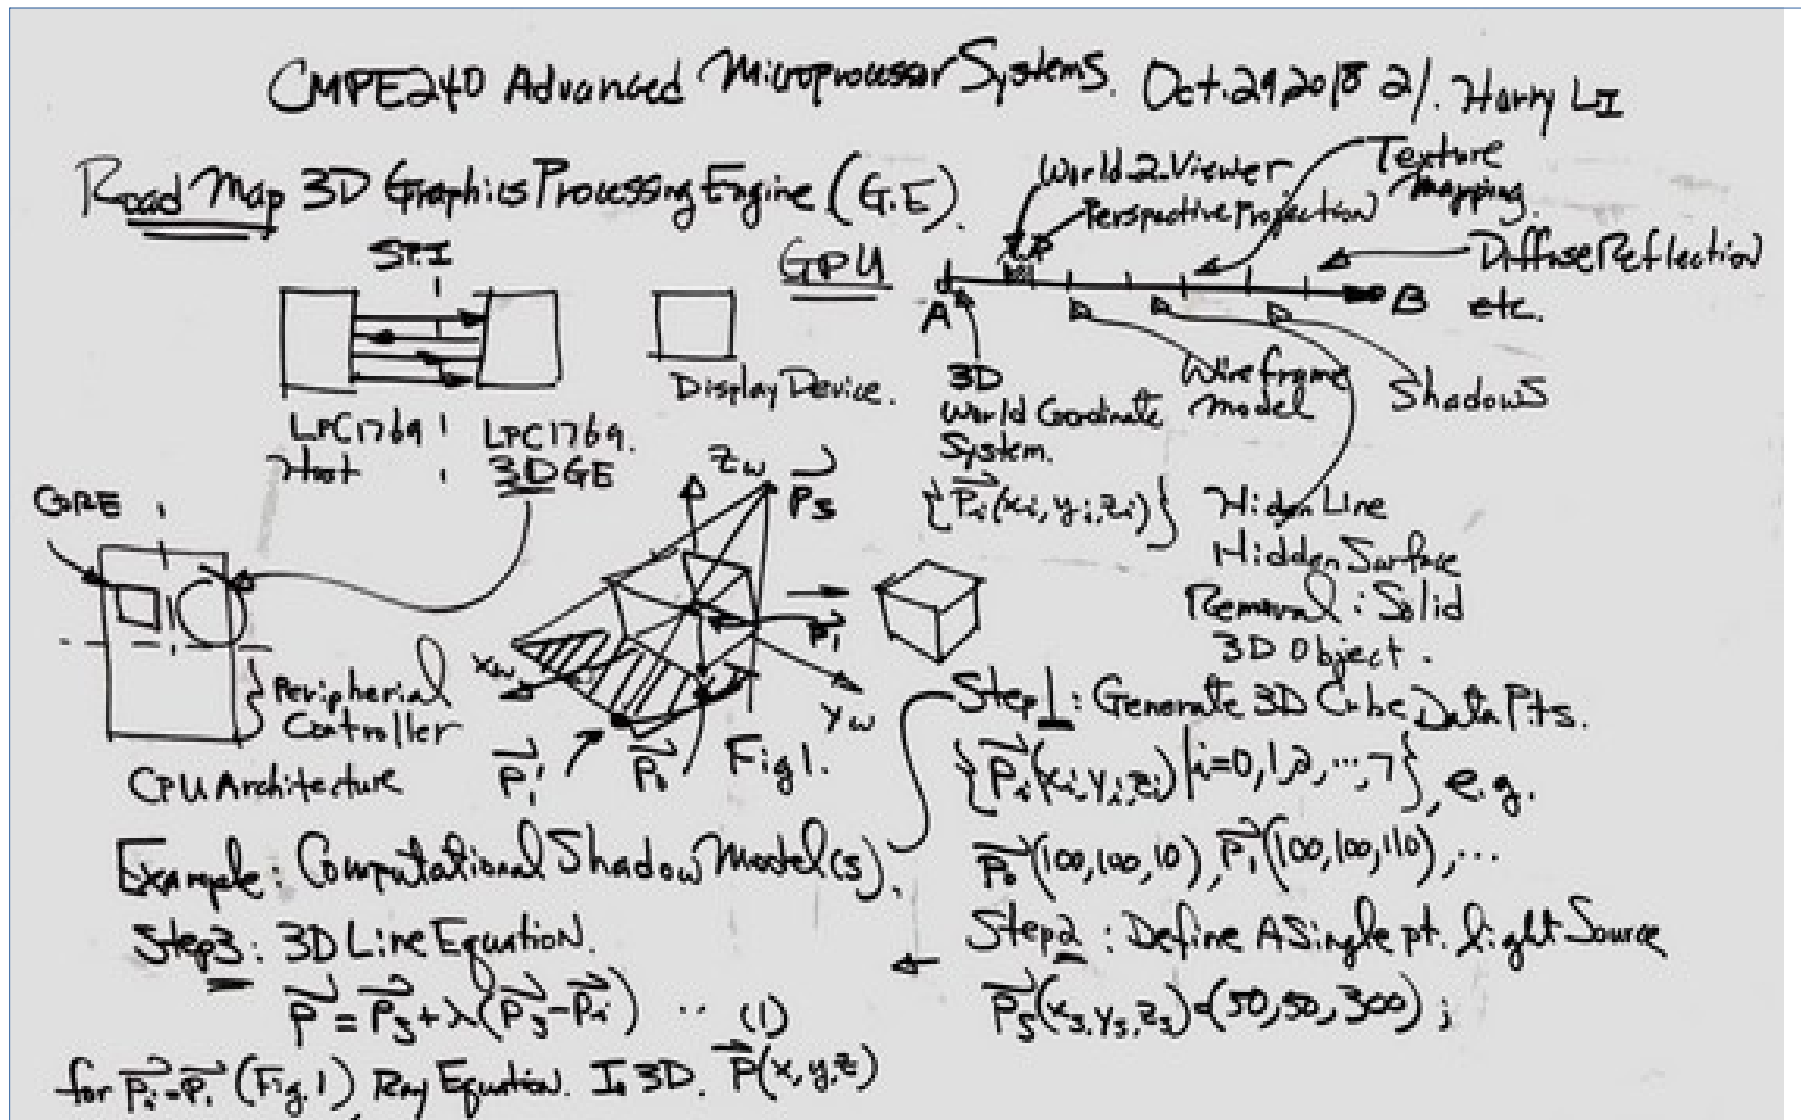 CMPE240 Advanced Microprocessor Systems. Oct.29,2018 2/. Harry LI
Road Map 3D Graphics Processing Engine (G.E).
World-2-Viewer
Perspective Projection
Texture
Mapping.
Diffuse Reflection
etc.
S.P.I
GPU
A
B
LPC1769
Host
LPC1769.
3D GE
Display Device.
3D
World Coordinate
System.
{Pi(xi, yi, zi)}
Wireframe
Model
Shadows
Hidden Line
Hidden Surface
Removal: Solid
3D Object.
CORE
Peripherial
Controller
CPU Architecture
Zw
Ps
P1
Xw
Yw
P1'
P0
Fig 1.
Example: Computational Shadow Model(s).
Step1: Generate 3D Cube Data Pts.
{Pi(xi, yi, zi) | i=0,1,2,...,7}, e.g.
P0(100,100,10), P1(100,100,110), ...
Step2: Define A Single pt. light Source
Ps(xs, ys, zs)=(50,50,300);
Step3: 3D Line Equation.
P = Ps + λ(Ps - Pi) .. (1)
for Pi=P1 (Fig.1) Ray Equation. In 3D. P(x,y,z)